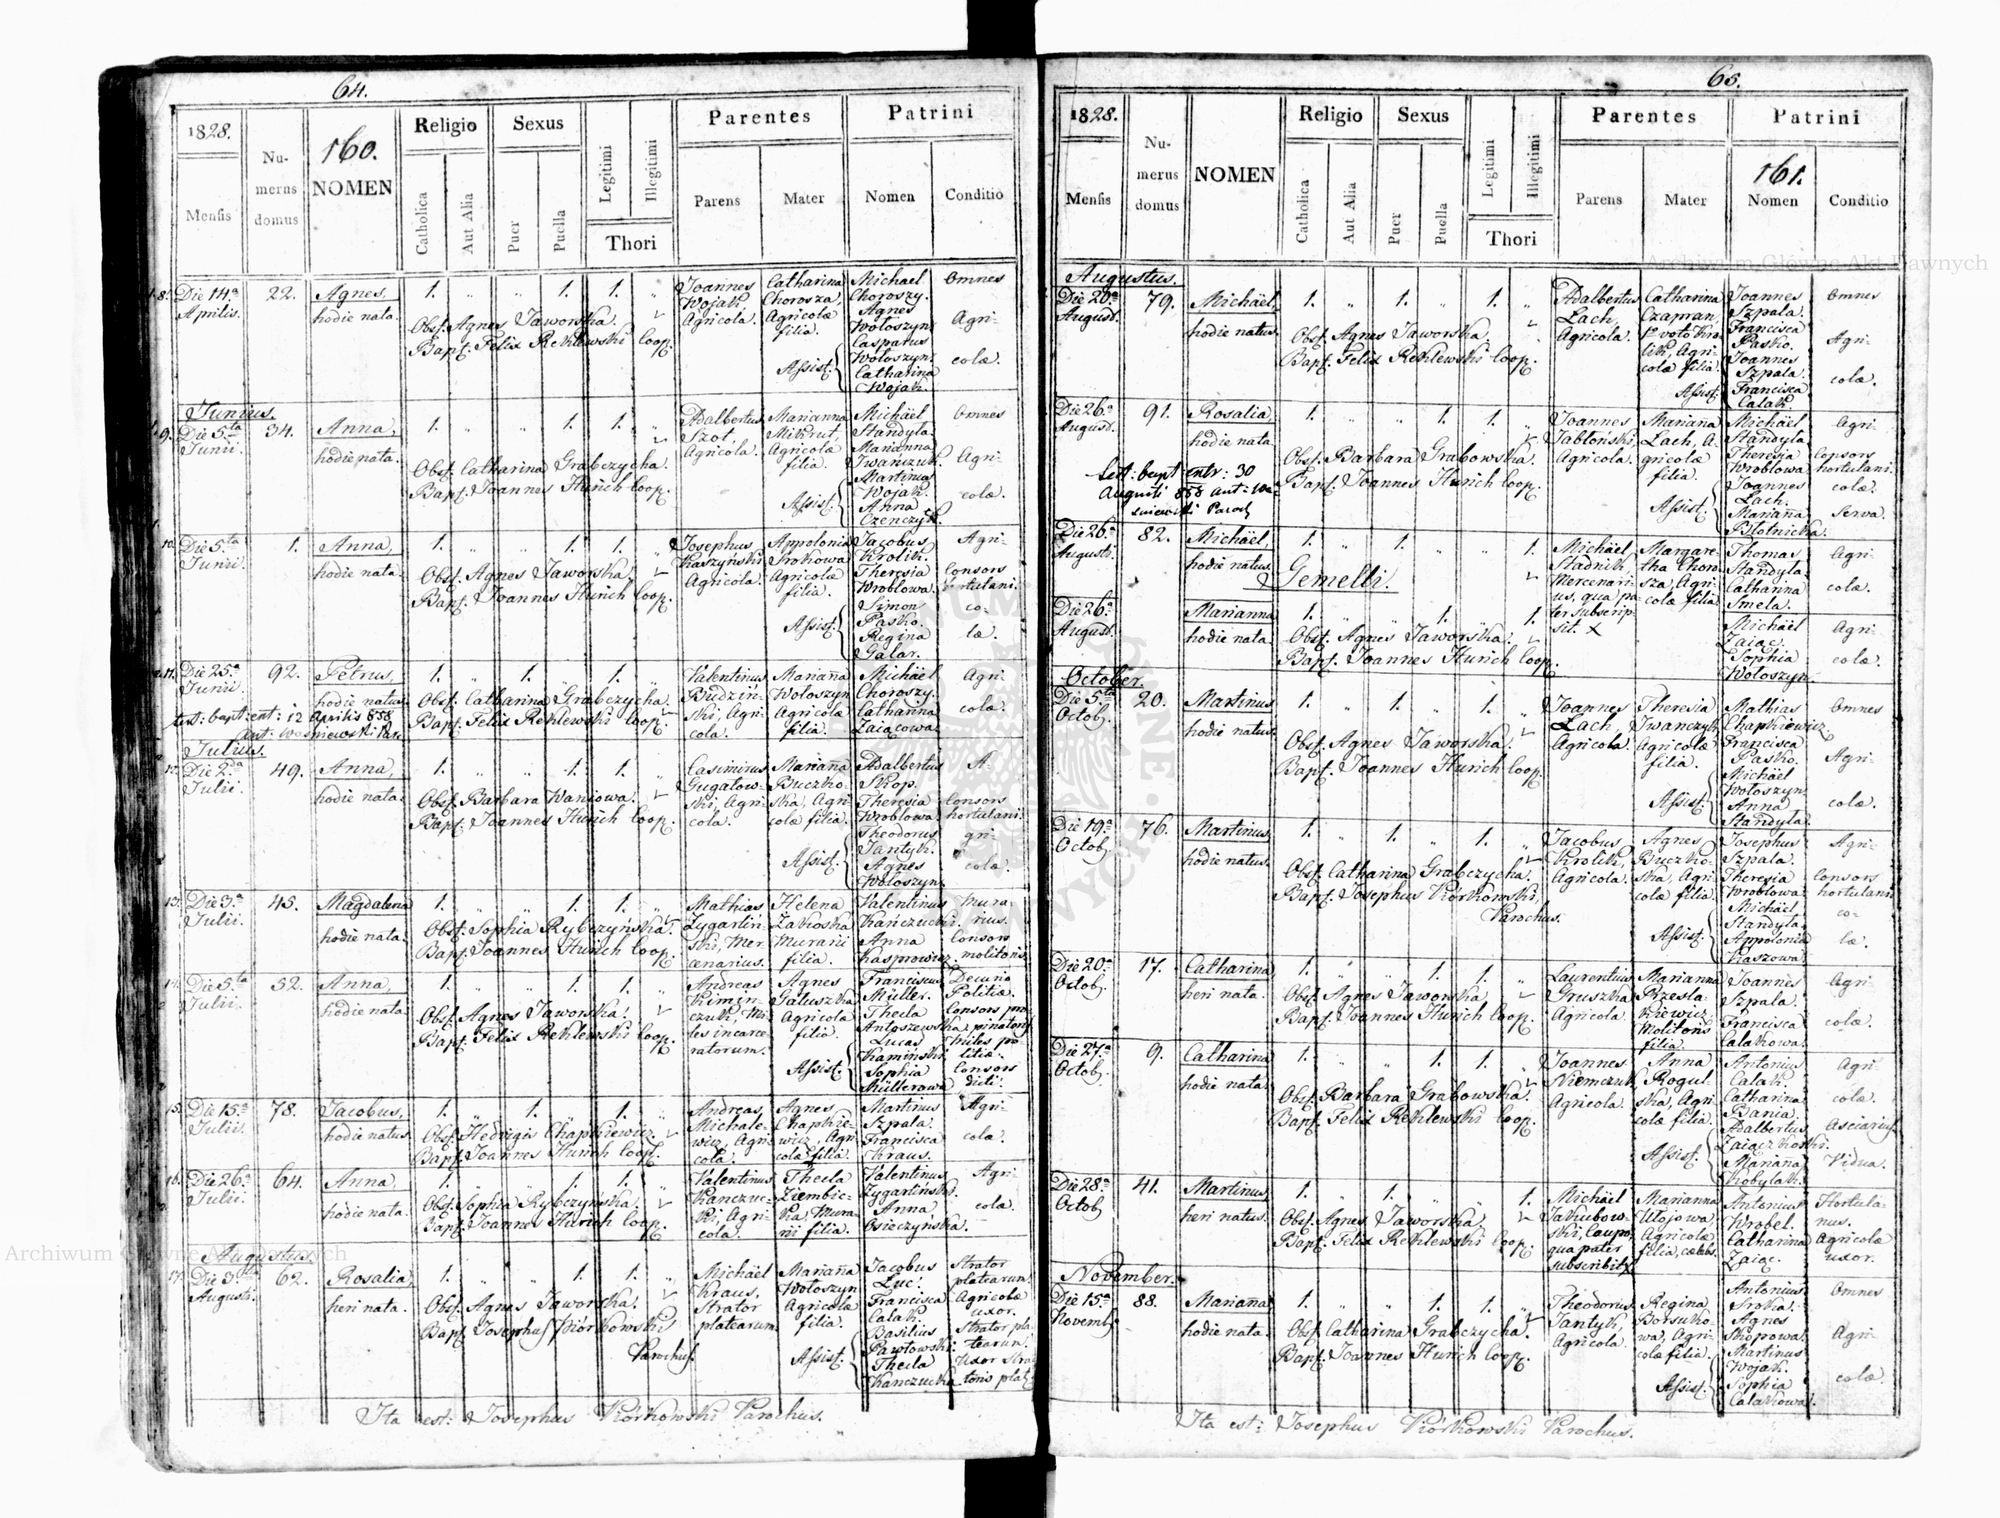 64.
1828.
Mensis
Numerus domus
160.
NOMEN
Religio
Catholica
Aut Alia
Sexus
Puer
Puella
Legitimi
Illegitimi
Thori
Parentes
Parens
Mater
Patrini
Nomen
Conditio
8. Die 14a Aprilis. 22. Agnes, hodie nata. 1. „ „ 1. 1. „
Obst. Agnes Jaworska.
Bapt. Felix Rehlewski Coop.
Joannes Wojak Agricola.
Catharina Chorosza, Agricolæ filia.
Michael Choroszy. Agnes Wołoszyn
Assist. Casparus Wołoszyn. Catharina Wojak.
Omnes Agricolæ.
Junius.
9. Die 5ta Junii. 34. Anna, hodie nata. 1. „ „ 1. 1. „
Obst. Catharina Grabczycha.
Bapt. Joannes Hurich Coop.
Adalbertus Szot, Agricola.
Marianna Mikrut, Agricolæ filia.
Michäel Standyla. Marianna Iwańczuk.
Assist. Martinus Wojak. Anna Czenczyk.
Omnes Agricolæ.
10. Die 5ta Junii. 1. Anna, hodie nata. 1. „ „ 1. 1. „
Obst. Agnes Jaworska.
Bapt. Joannes Hurich Coop.
Josephus Kaszyński Agricola.
Appolonia Srokowa Agricolæ filia.
Jacobus Krolik. Theresia Wroblowa.
Assist. Simon Pasko. Regina Galar.
Agri- Consors hortulani. colæ.
11. Die 25a Junii. 92. Petrus, hodie natus. 1. „ 1. „ 1. „
Obst. Catharina Grabczycha.
Bapt. Felix Rehlewski Coop.
test: bapt: ent: 12 Aprilis 858
Valentinus Budziński, Agricola.
Mariana Wołoszyn Agricolæ filia.
Michäel Choroszy. Catharina Zaiącowa.
Agricolæ.
Julius.
12. Die 2da Julii. 49. Anna, hodie nata. 1. „ „ 1. 1. „
Obst. Barbara Waniowa.
Bapt. Joannes Hurich Coop.
Casimirus Gugałowski, Agricola.
Mariana Buczkoska, Agricolæ filia.
Adalbertus Skop. Theresia Wroblowa.
Assist. Theodorus Jantyk. Agnes Wołoszyn.
A- Consors hortulani. gricolæ.
13. Die 3a Julii. 45. Magdalena hodie nata. 1. „ „ 1. 1. „
Obst. Sophia Rybczyńska.
Bapt. Joannes Hurich Coop.
Mathias Zygartiński, Mercenarius.
Helena Zakoska Murarii filia.
Valentinus Kańczucki. Anna Kasprowicz.
Murarius. Consors molitoris.
14. Die 5ta Julii. 52. Anna, hodie nata. 1. „ „ 1. 1. „
Obst. Agnes Jaworska.
Bapt. Felix Rehlewski Coop.
Andreas Kiminczuk, Miles incarceratorum.
Agnes Galuszka Agricola filia.
Franciscus Müller. Thecla Antoszewska
Assist. Lucas Kamiński. Sophia Müllerowa
Decurio Politiæ. Consors propinatoris Miles politiæ. Consors dicti.
15. Die 15a Julii. 78. Jacobus, hodie natus. 1. „ 1. „ 1. „
Obst. Hedvigis Chapkiewicz.
Bapt. Joannes Hurich Coop.
Andreas Michalewicz, Agricola.
Agnes Chapkiewicz, Agricolæ filia.
Martinus Szpala. Francisca Kraus.
Agricolæ.
16. Die 26a Julii. 64. Anna, hodie nata. 1. „ „ 1. 1. „
Obst. Sophia Rybczyńska.
Bapt. Joannes Hurich Coop.
Valentinus Kanczucki, Agricola.
Thecla Ziembicka, Murarii filia.
Valentinus Zygartiński. Anna Owieczyńska.
Agricolæ.
Augustus.
17. Die 3tia Augusti. 62. Rosalia heri nata. 1. „ „ 1. 1. „
Obst. Agnes Jaworska.
Bapt. Josephus Kiórkowski Parochus.
Michäel Kraus, Strator platearum.
Mariana Wołoszyn Agricolæ filia.
Jacobus Luc. Francisca Calak.
Assist. Basilius Pawłowski. Thecla Kanczucka
Strator platearum. Agricolæ uxor. Strator platearum. Uxor Stratoris plat.
Ita est: Josephus Kiórkowski Parochus.
65.
1828.
Mensis
Numerus domus
NOMEN
Religio
Catholica
Aut Alia
Sexus
Puer
Puella
Legitimi
Illegitimi
Thori
Parentes
Parens
Mater
Patrini
161.
Nomen
Conditio
Augustus.
Die 20a August. 79. Michäel, hodie natus. 1. „ 1. „ 1. „
Obst. Agnes Jaworska.
Bapt. Felix Rehlewski Coop.
Adalbertus Lach, Agricola.
Catharina Czapran, 1o voto Krolik, Agricolæ filia.
Joannes Szpala. Francisca Pasko.
Assist. Joannes Szpala. Francisca Calak.
Omnes Agricolæ.
Die 26a August. 91. Rosalia, hodie nata. 1. „ „ 1. 1. „
Obst. Barbara Grabowska.
Bapt. Joannes Hurich Coop.
Test: bapt: entr: 30
Augusti 858
Joannes Jabłoński, Agricola.
Mariana Lach, Agricolæ filia.
Michäel Standyla. Theresia Wroblowa
Assist. Joannes Lach. Mariana Błotnicka.
Agri- Consors hortulani. colæ. Serva.
Die 26a August. 82. Michäel, hodie natus. 1. „ 1. „ „ 1.
Gemelli.
Michäel Stadnik, Mercenarius, qua pater subscripsit. X
Margaretha Chorosza, Agricolæ filia
Thomas Standyla. Catharina Smela.
Agricolæ.
Die 26a August. Marianna hodie nata. 1. „ „ 1. „ 1.
Obst. Agnes Jaworska.
Bapt. Joannes Hurich Coop.
Michäel Zaiąc. Sophia Wołoszyn.
Agricolæ.
October.
Die 5ta Octob. 20. Martinus hodie natus. 1. „ 1. „ 1. „
Obst. Agnes Jaworska.
Bapt. Joannes Hurich Coop.
Joannes Lach Agricola.
Theresia Iwanczyk Agricolæ filia.
Mathias Chapkiewicz. Francisca Pasko.
Assist. Michäel Wołoszyn. Anna Standyla.
Omnes Agricolæ.
Die 19a Octob. 76. Martinus hodie natus. 1. „ 1. „ 1. „
Obst. Catharina Grabczycha.
Bapt. Josephus Kiórkowski, Parochus.
Jacobus Krolik, Agricola.
Agnes Buczkoska, Agricolæ filia.
Josephus Szpala. Theresia Wroblowa.
Assist. Michäel Standyla. Appolonia Kaszowa.
Agri- Consors hortulani colæ.
Die 20a Octob. 17. Catharina heri nata. 1. „ „ 1. 1. „
Obst. Agnes Jaworska.
Bapt. Joannes Hurich Coop.
Laurentius Gruszka Agricola.
Marianna Rzeslakiewicz Molitoris filia.
Joannes Szpala. Francisca Calakowa.
Agricolæ.
Die 27a Octob. 9. Catharina hodie nata. 1. „ „ 1. 1. „
Obst. Barbara Grabowska.
Bapt. Felix Rehlewski Coop.
Joannes Niemczuk Agricola.
Anna Rogulska, Agricolæ filia.
Antonius Calak. Catharina Bania.
Assist. Adalbertus Zaiączkowski. Mariana Kobylak.
Agricolæ. Asciarius. Vidua.
Die 28a Octob. 41. Martinus heri natus. 1. „ 1. „ „ 1.
Obst. Agnes Jaworska.
Bapt. Felix Rehlewski Coop.
Michäel Jakubowski, Caupo, qua pater subscribit X
Marianna Utojowa, Agricolæ filia, cælebs.
Antonius Wrobel. Catharina Zaiąc.
Hortulanus. Agricolæ uxor.
November.
Die 15a Novemb. 88. Mariana hodie nata. 1. „ „ 1. 1. „
Obst. Catharina Grabczycha.
Bapt. Joannes Hurich Coop.
Theodorus Jantyk, Agricola.
Regina Borsukowa, Agricolæ filia.
Antonius Sroka. Agnes Skopowa.
Assist. Martinus Wojak. Sophia Calakowa.
Omnes Agricolæ.
Ita est: Josephus Kiórkowski Parochus.
Archiwum Główne Akt Dawnych
Archiwum Główne Akt Dawnych